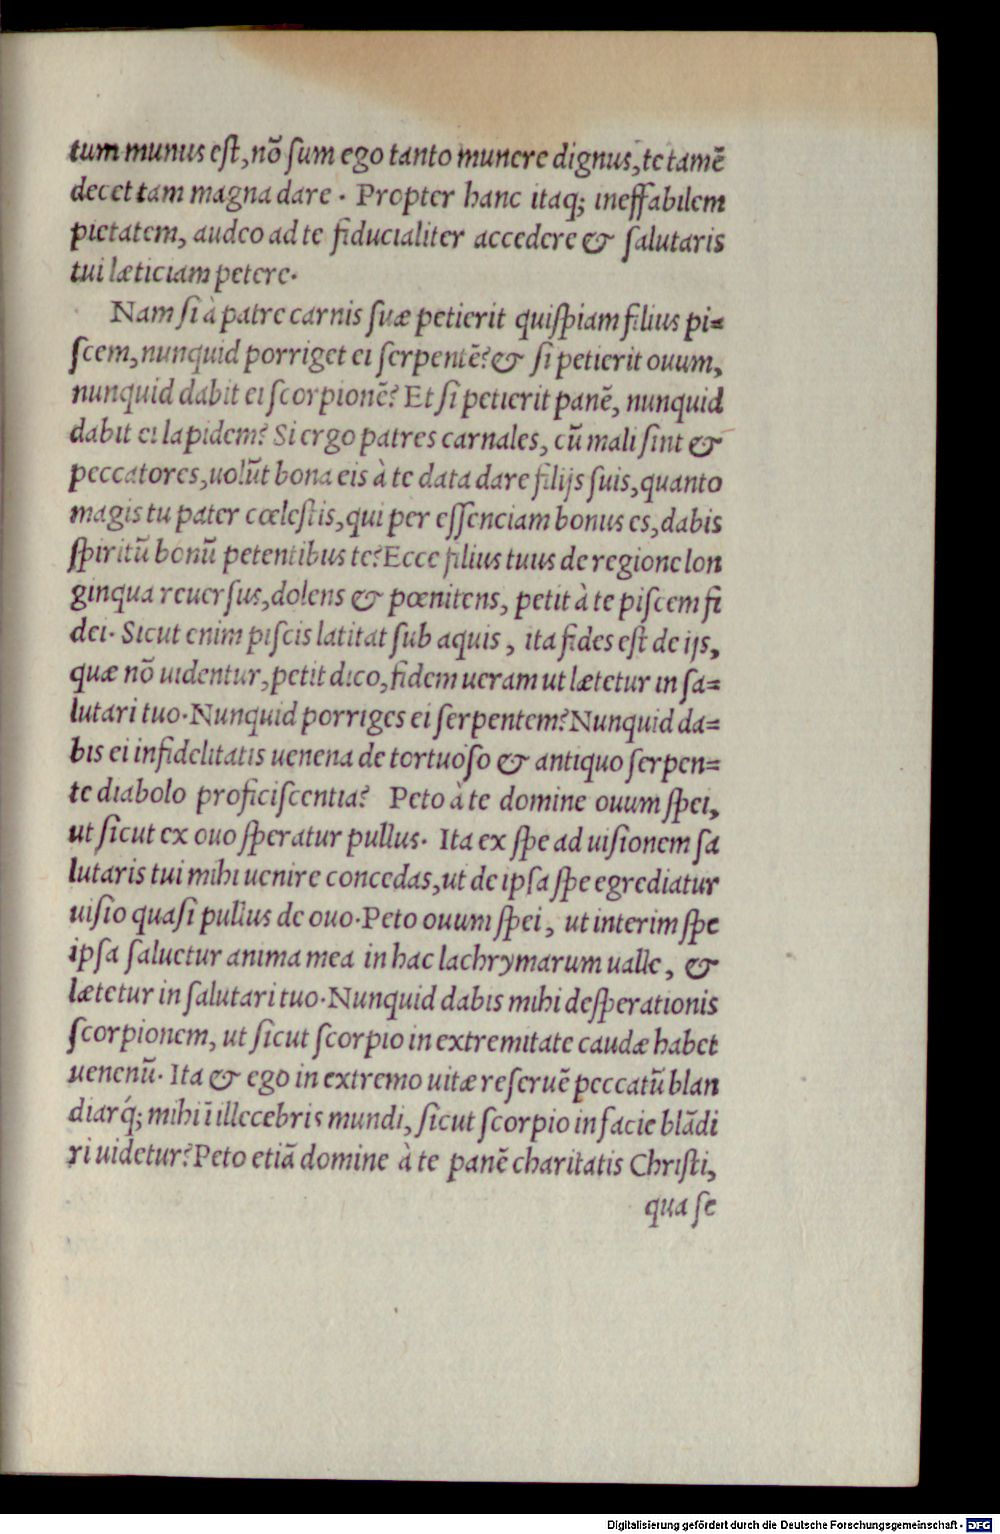 tum munus est, nõ sum ego tanto munere dignus, te tamẽ
decet tam magna dare · Propter hanc itaq; ineffabilem
pietatem, audeo ad te fiducialiter accedere & salutaris
tui læticiam petere·
Nam si à patre carnis suæ petierit quispiam filius pi=
scem, nunquid porriget ei serpentẽ? & si petierit ouum,
nunquid dabit ei scorpionẽ? Et si petierit panẽ, nunquid
dabit ei lapidem? Si ergo patres carnales, cũ mali sint &
peccatores, uolũt bona eis à te data dare filijs suis, quanto
magis tu pater cœlestis, qui per essenciam bonus es, dabis
spiritũ bonũ petentibus te? Ecce filius tuus de regione lon
ginqua reuersus, dolens & pœnitens, petit à te piscem fi
dei· Sicut enim piscis latitat sub aquis , ita fides est de ijs,
quæ nõ uidentur, petit dico, fidem ueram ut lætetur in sa=
lutari tuo·Nunquid porriges ei serpentem? Nunquid da=
bis ei infidelitatis uenena de tortuoso & antiquo serpen=
te diabolo proficiscentia? Peto à te domine ouum spei,
ut sicut ex ouo speratur pullus· Ita ex spe ad uisionem sa
lutaris tui mihi uenire concedas, ut de ipsa spe egrediatur
uisio quasi pullus de ouo·Peto ouum spei, ut interim spe
ipsa saluetur anima mea in hac lachrymarum ualle, &
lætetur in salutari tuo·Nunquid dabis mihi desperationis
scorpionem, ut sicut scorpio in extremitate caudæ habet
uenenũ· Ita & ego in extremo uitæ reseruẽ peccatũ blan
diarq́; mihi ĩ illecebris mundi, sicut scorpio in facie blãdi
ri uidetur? Peto etiã domine à te panẽ charitatis Christi,
qua se
Digitalisierung gefördert durch die Deutsche Forschungsgemeinschaft - DFG